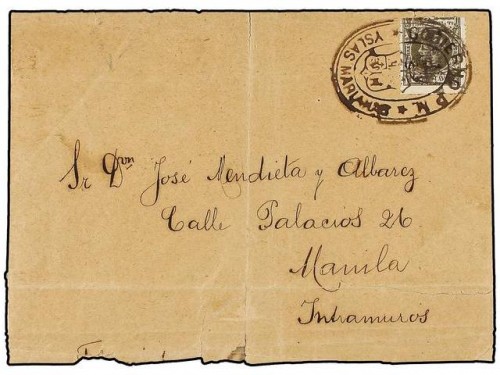 GOBIERNO P.M.
YSLAS MARIANAS
Sr Dn José Mendieta y Albarez
Calle Palacios 26
Manila
Intramuros